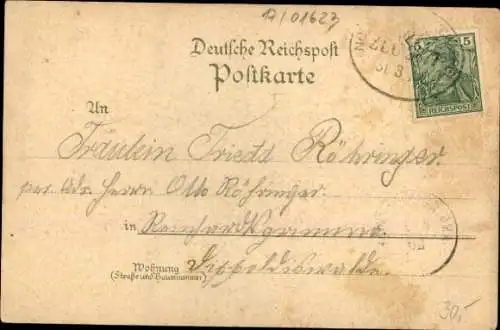 17/01623
Deutsche Reichspost
Postkarte
5 5
REICHSPOST
An
Fräulein Frieda Röhringer.
per Adr. Herrn Otto Röhringer.
in Reinhardtsgrimma
Wohnung
(Straße und Hausnummer)
Dippoldiswalde.
30,-